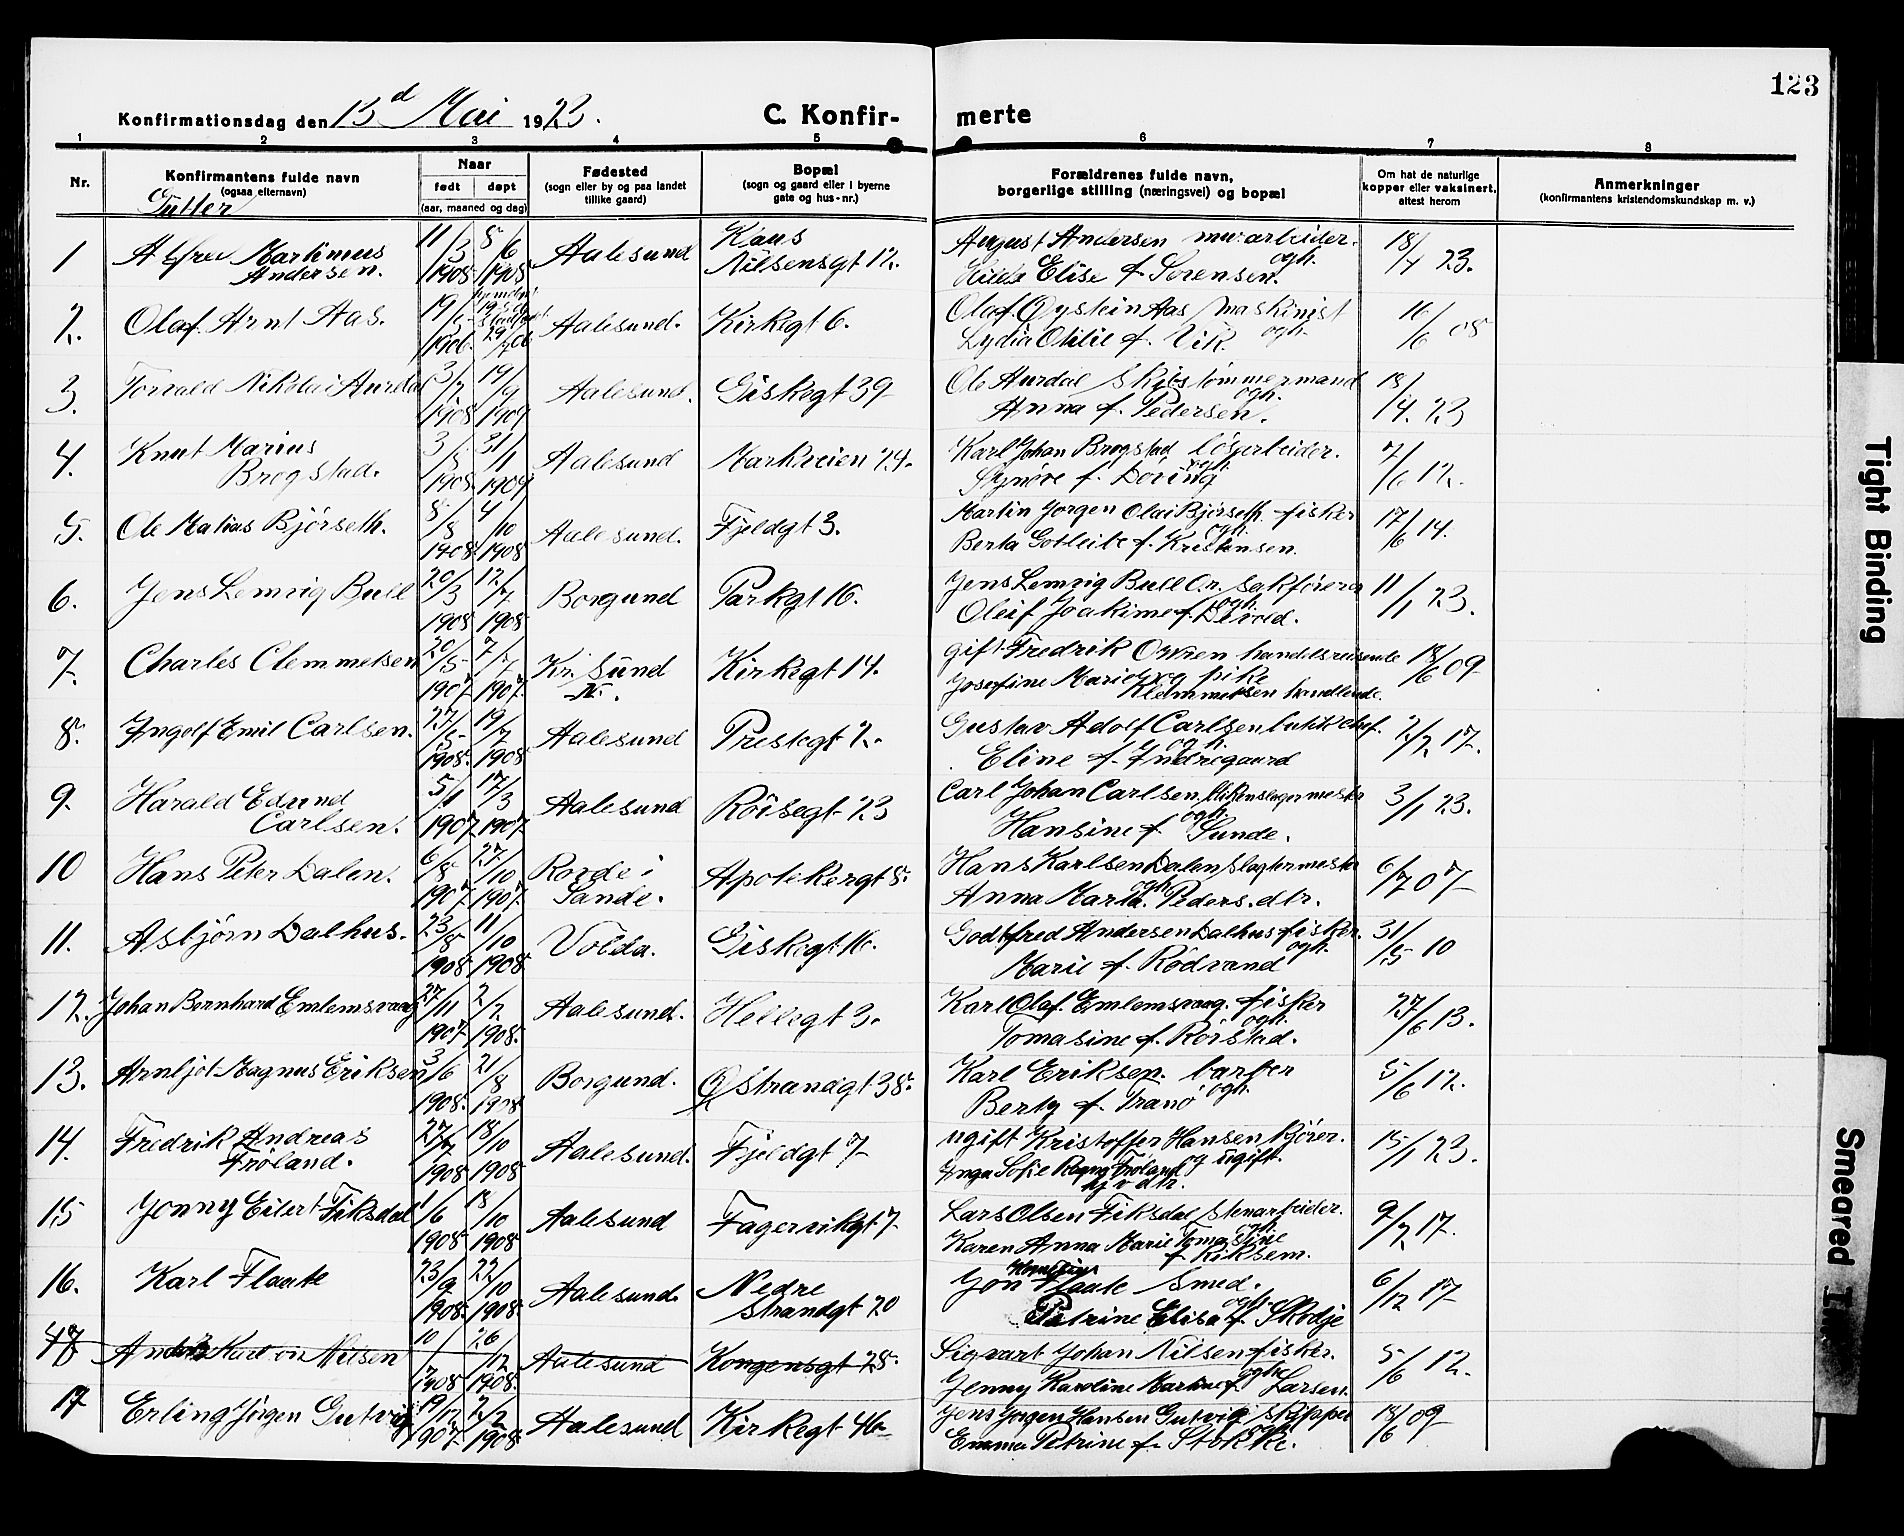 123
Konfirmationsdag den 13d Mai 1923.
C. Konfir-
merte
1 2 3 4 5 6 7 8
Nr.
Konfirmantens fulde navn
(ogsaa efternavn)
Gutter
Naar
født døpt
(aar, maaned og dag)
Fødested
(sogn eller by og paa landet
tillike gaard)
Bopæl
(sogn og gaard eller i byerne
gate og hus-nr.)
Forældrenes fulde navn,
borgerlige stilling (næringsvei) og bopæl
Om hat de naturlige
kopper eller vaksinert,
attest herom
Anmerkninger
(konfirmantens kristendomskundskap m. v.)
1 Alfred Martinus
Andersen.
11/3 1908 8/6 1908
Aalesund
Klaus
Nilsensgt 12.
August Andersen murarbeider.
ogh.
Elise f. Sørensen.
18/4 23.
2. Olaf Arnt Aas.
Aalesund.
Kirkegt 6.
Olaf Øystein Aas maskinist
ogh.
Lydia Otilie f. Vik.
16/6 08
3. Torvald Nikolai Aurdal
3/7 1908 19/9 1909
Aalesund.
Giskegt 39
Ole Aurdal Skibstømmermand
ogh.
Anna f. Pedersen.
18/4. 23
4. Knut Marius
Brogstad.
3/8 1908 31/1 1909
Aalesund
Markveien 24.
Karl Johan Brogstad løsarbeider.
ogh.
Synøve f. Døving
7/6 12.
5. Ole Matias Bjørseth.
8/8 1908. 4/10 1908
Aalesund.
Fjeldgt 3.
Martin Jørgen Olai Bjørseth. fisker
ogh.
Berta Gotleibe f. Kristensen.
17/6 14.
6. Jens Lemvig Bull
20/3 1908 12/7 1908
Borgund
Parkgt 16.
Jens Lemvig Bull O.r. sakfører
ogh.
Oleif Joakime f. Devold.
11/1 23.
7. Charles Clemmetsen
20/5 1907 7/7 1907.
Kr. Sund
N.
Kirkegt 14.
gift Fredrik Owren handelsreisende
Josefine Marie og pike
Klemmetsen handlende.
18/6 09
8. Ingolf Emil Carlsen.
27/5 1908. 19/7 1908
Aalesund
Prestegt 2.
Gustav Adolf Carlsen butikchef.
ogh.
Eline f. Indregaard
2/2 17.
9. Harald Edvind
Carlsen.
5/1 1907 17/3 1907.
Aalesund
Røisegt 23
Carl Johan Carlsen, blikkenslagermester
ogh.
Hansine f. Sunde.
3/1 23.
10 Hans Peter Dalen.
6/8 1907. 27/10 1907.
Rovde i
Sande.
Apotekergt 8.
Hans Karlsen Dalen slagtermester
ogh.
Anna Marta Peders.dtr.
6/7 07
11. Asbjørn Dalhus.
23/8 1908 11/10 1908
Volda.
Giskegt 16.
Godtfred Andersen Dalhus fisker.
ogh.
Marie f. Rødvand
31/5 10
12. Johan Bernhard Emlemsvaag
27/11 1907 2/2 1908.
Aalesund.
Hellegt 3.
Karl Olaf. Emlemsvaag. fisker
ogh.
Tomasine f. Rørstad.
27/6 13.
13. Arnljot Magnus Eriksen
3/6 1908. 21/8 1908
Borgund.
Ø Strandgt 38.
Karl Eriksen. barber
ogh.
Berty f. Tranø
5/6 12.
14. Fredrik Andreas
Frøland.
27/7 1908 18/10 1908
Aalesund.
Fjeldgt 7
ugift Kristoffer Hansen kjører.
Inga Sofie Ragna Frøland og ugift.
15/1 23.
15 Jonny Eilert Fiksdal
1/6 1908 18/10 1908
Aalesund
Fagervikgt 7
Lars Olsen Fiksdal stenarbeider.
ogh.
Karen Anna Marie Tomasine
f. Riksem.
9/2 17.
16. Karl Flaate
23/9 1908. 22/10 1908
Aalesund.
Nedre
Strandgt 20
Jon Flaate smed.
ogh.
Petrine Elisa f. Skodje
6/12 17
Karl Nilsen
10/ 1908 26/12 1908.
Aalesund
Kongensgt 28.
Sigvart Johan Nilsen fisker.
ogh.
Jenny Karoline Martine f. Larsen.
5/6 12.
17 Erling Jørgen Gutvig
19/12 1907. 2/2 1908
Aalesund
Kirkegt 46
Jens Jørgen Hansen Gutvig skipper
ogh.
Emma Petrine f. Stokke.
18/6 09
Tight Binding
Smeared